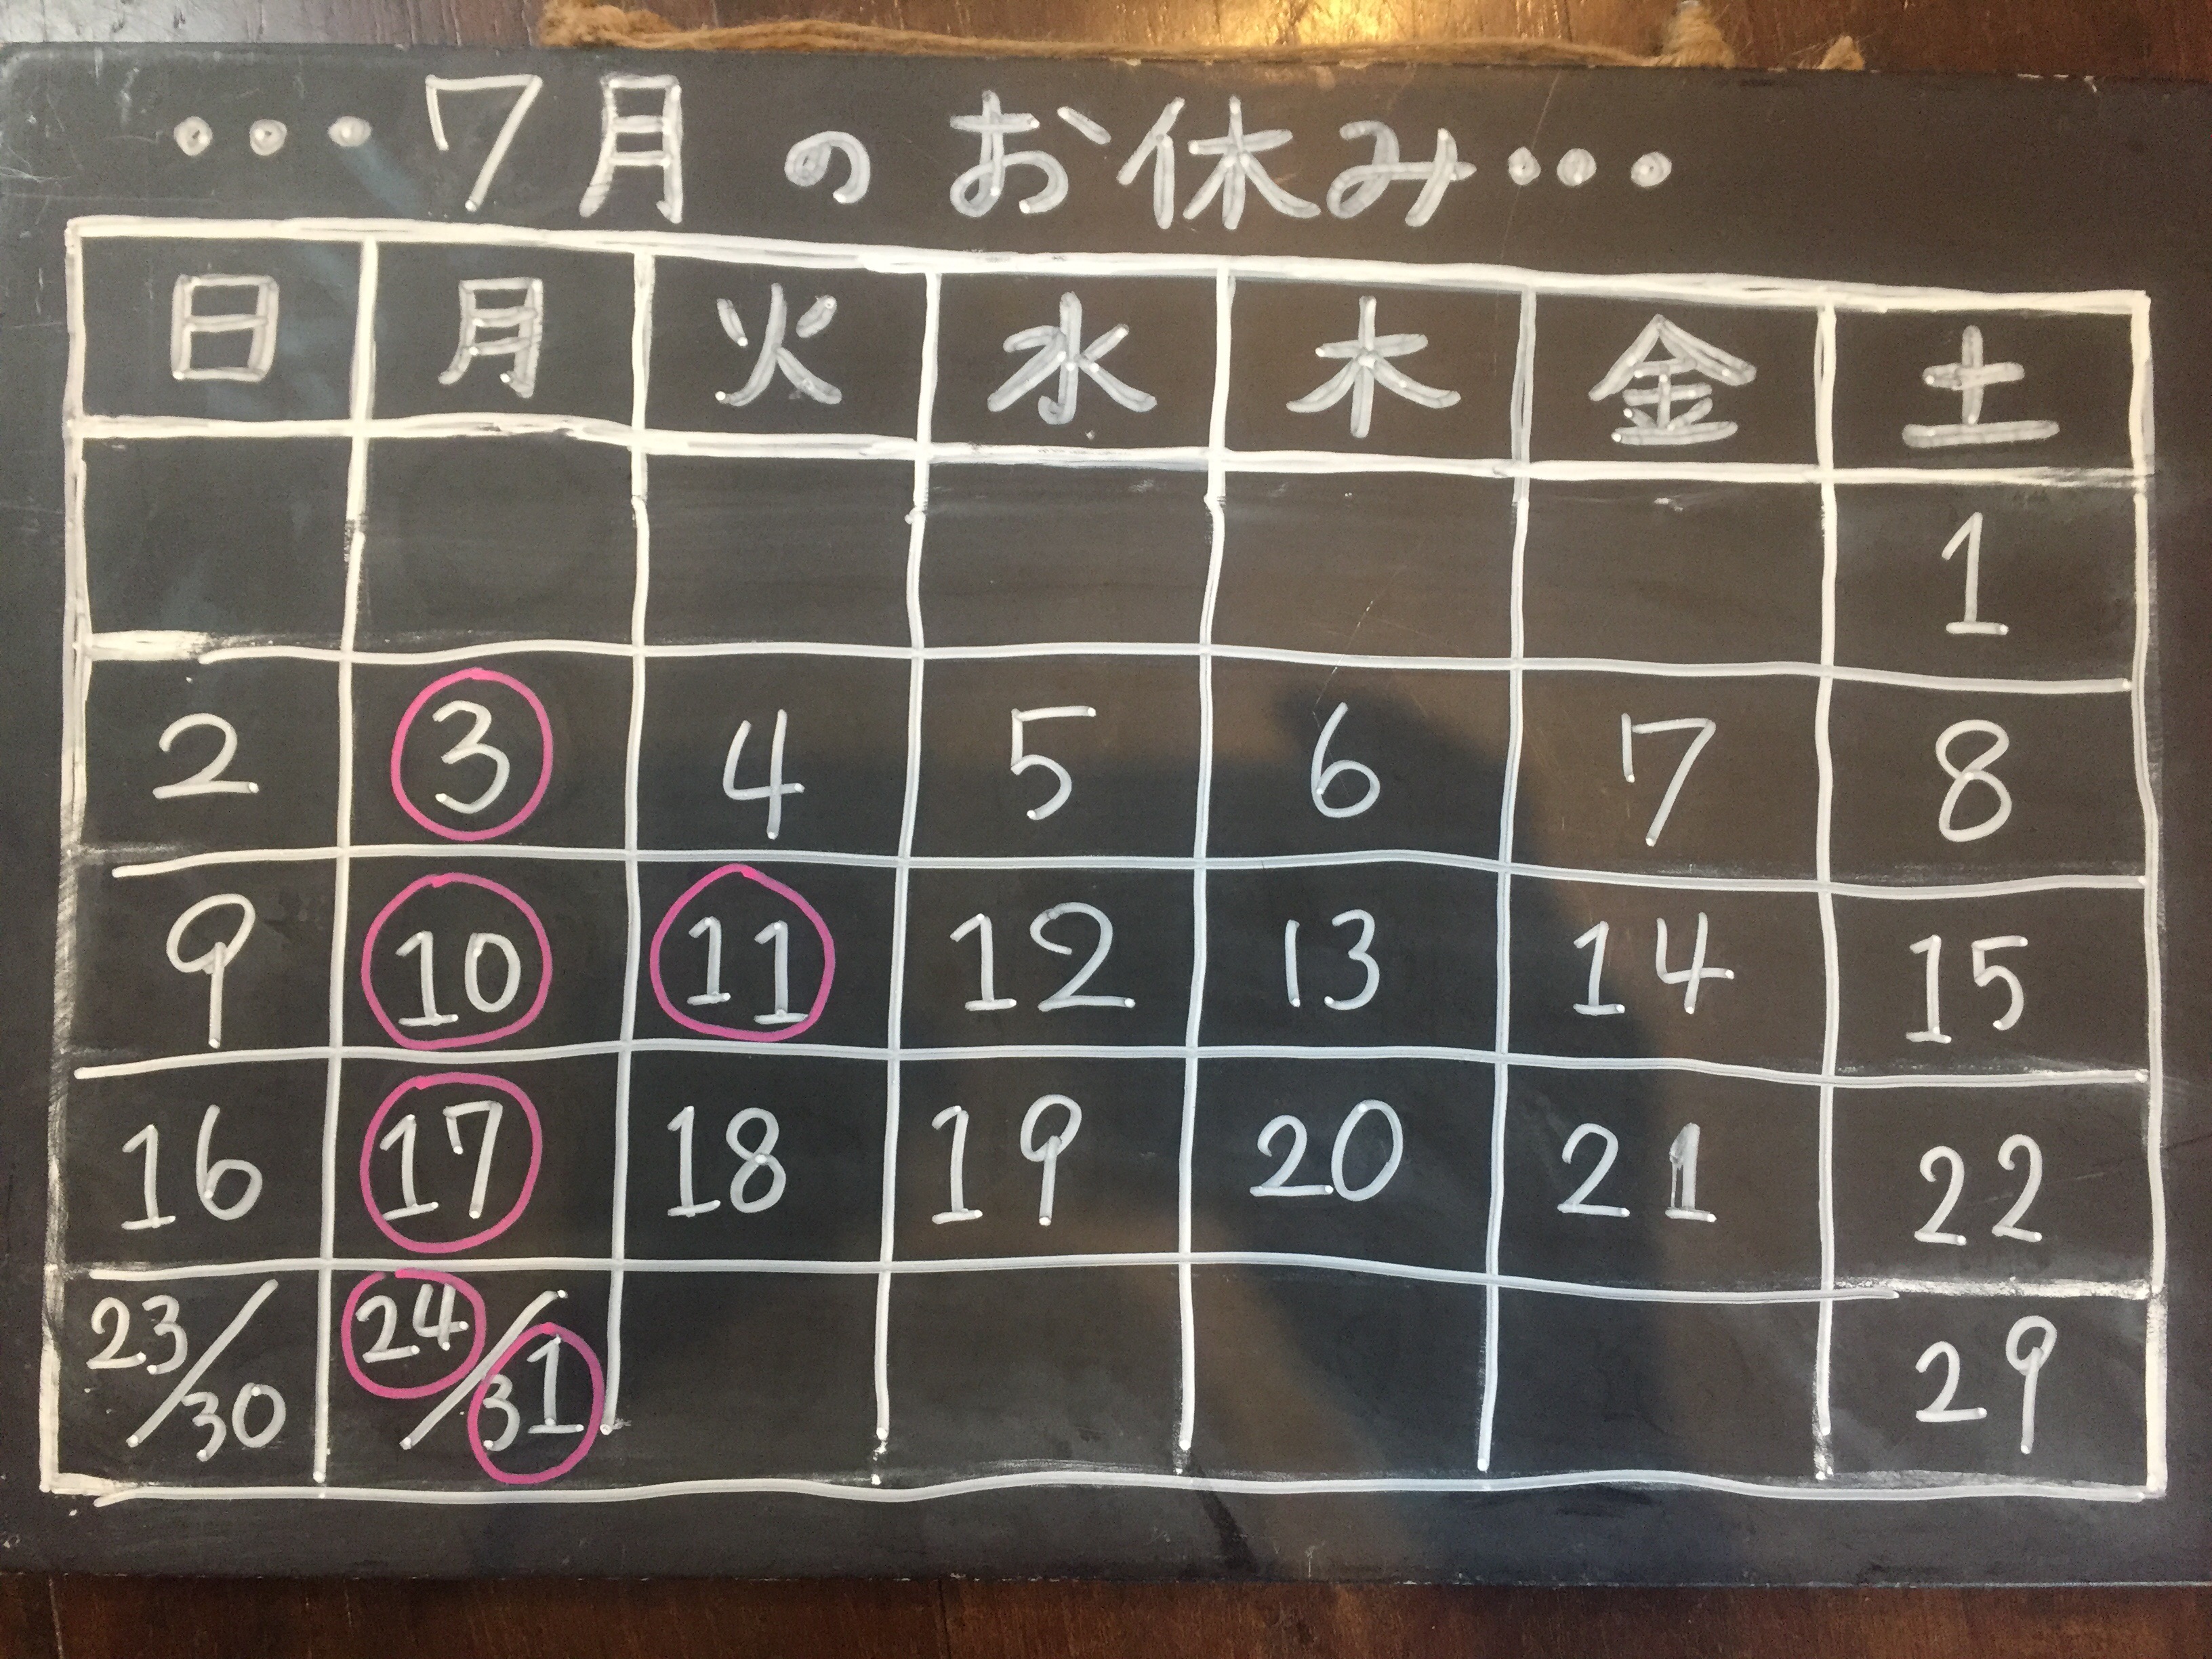 ・・・7月のお休み・・・
日 月 火 水 木 金 土
1
2 3 4 5 6 7 8
9 10 11 12 13 14 15
16 17 18 19 20 21 22
23/30 24/31 29